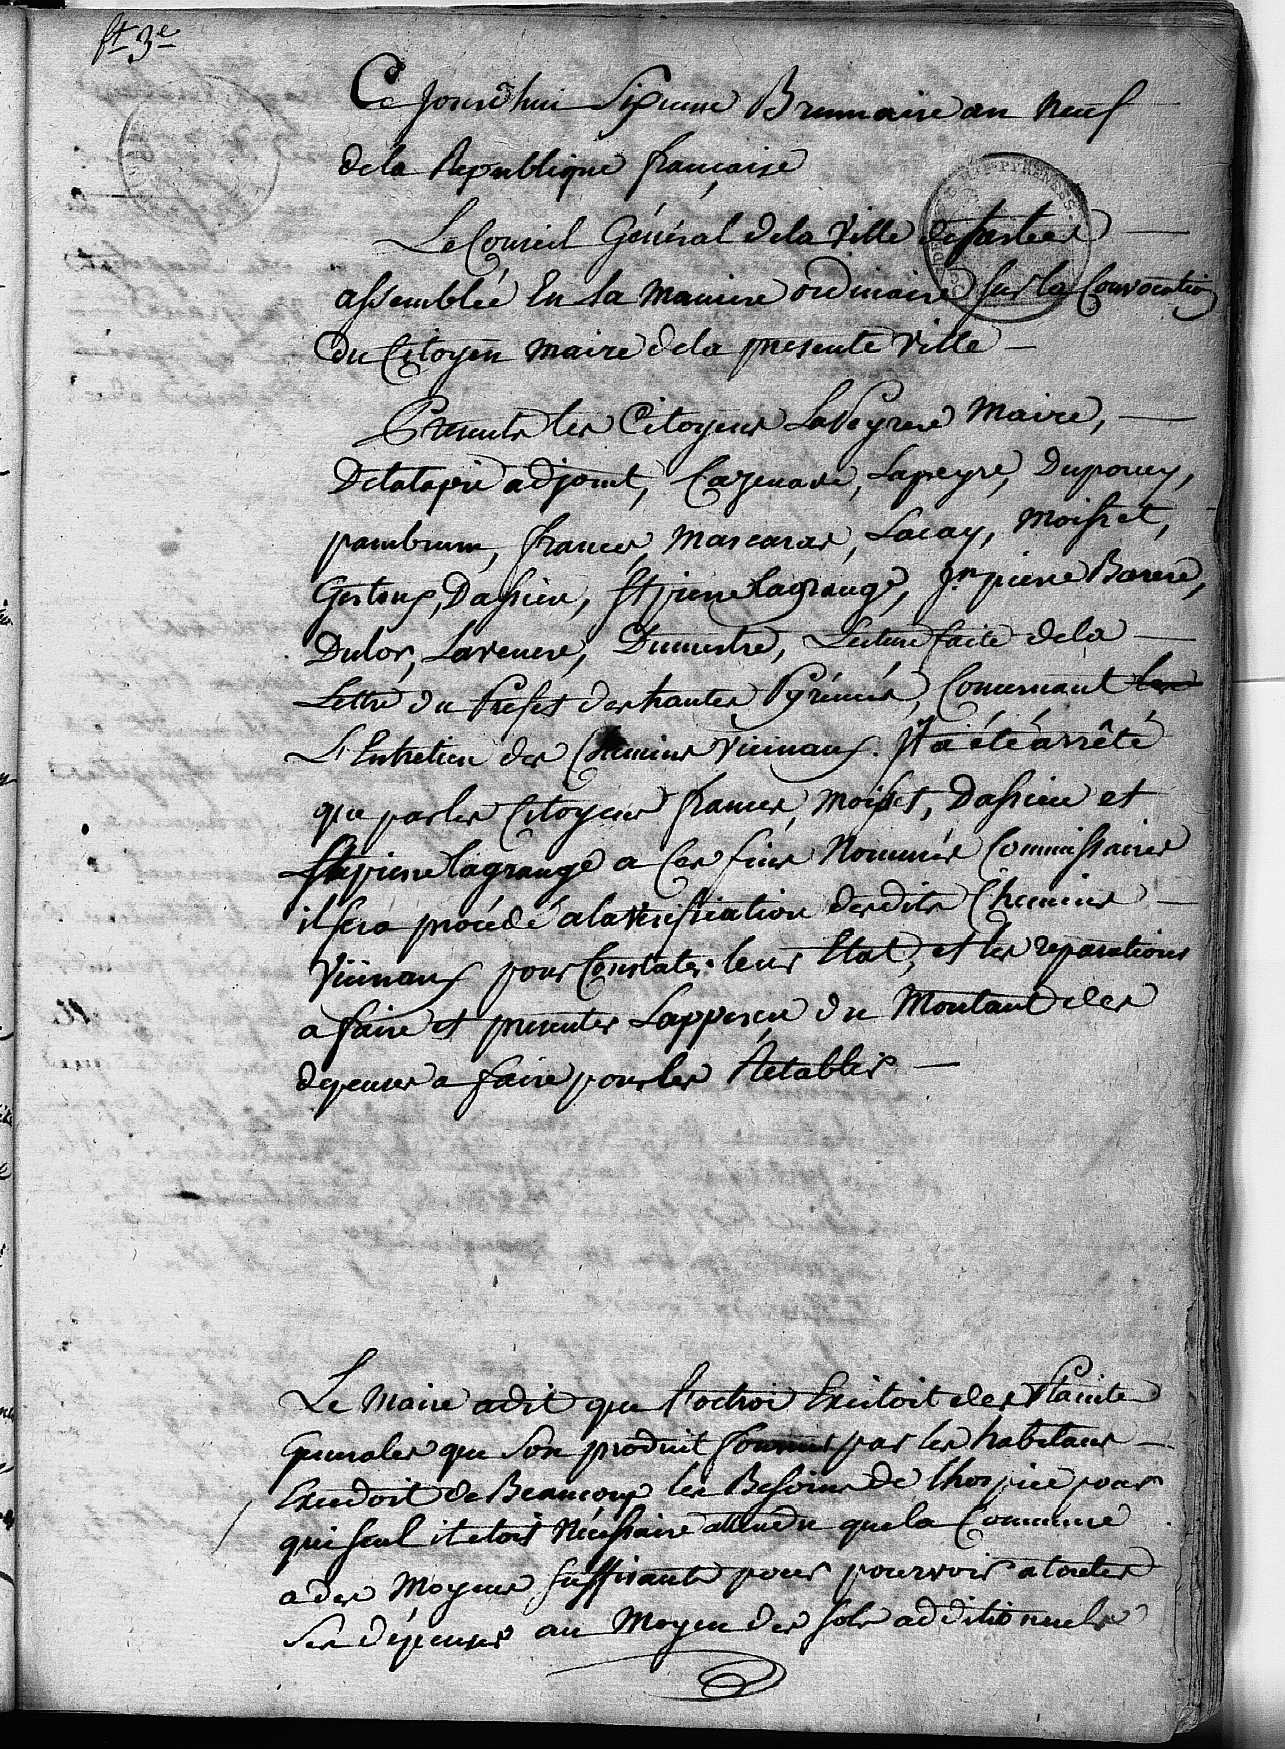 ft 3e
Ce jourdhui Sixieme Brumaire an neuf
dela Republique françaisse
Le Conseil Général dela Ville de tarbes
assemblée En la maniere ordinaire sur la Convocation
du Citoyen maire dela presente Ville
Presents les Citoyens Laveyrere Maire,
Delatapie adjoint, Cazenave, Lapeyre, Dupouey,
pambrum, francés, Mascaras, Lacay, Moisset,
Gertoux, Dassieu, St pierre lagrange, Jn pierre Barere,
Dulor, Lavenere, Dumestre, Lecture faite dela
Lettre du Préfet des hautes Pyrénées, Concernant les
L'Entretien des Chemins Vicinaux. Il a été arrêté
que par les Citoyens francés, Moisset, Dassieu et
St pierre lagrange a Ces fins Nommés Commissaires
il sera procédé ala verification desdits Chemins
Vicinaux pour Constater leur Etat, et les reparations
a faire et presenter Lapperçu du Montant des
depenses a faire pour les Retablir
Le Maire adit que l'octroi Excitoit des Plainte
Generales que Son produit fournis par les habitans
Excedoit de Beaucoup les Besoins de lhospice pour
qui seul il etoit Nécéssaire attendu que la Commune
a des Moyens suffisants pour pourvoir a toutes
Ses dépenses au Moyen des sols additionnels